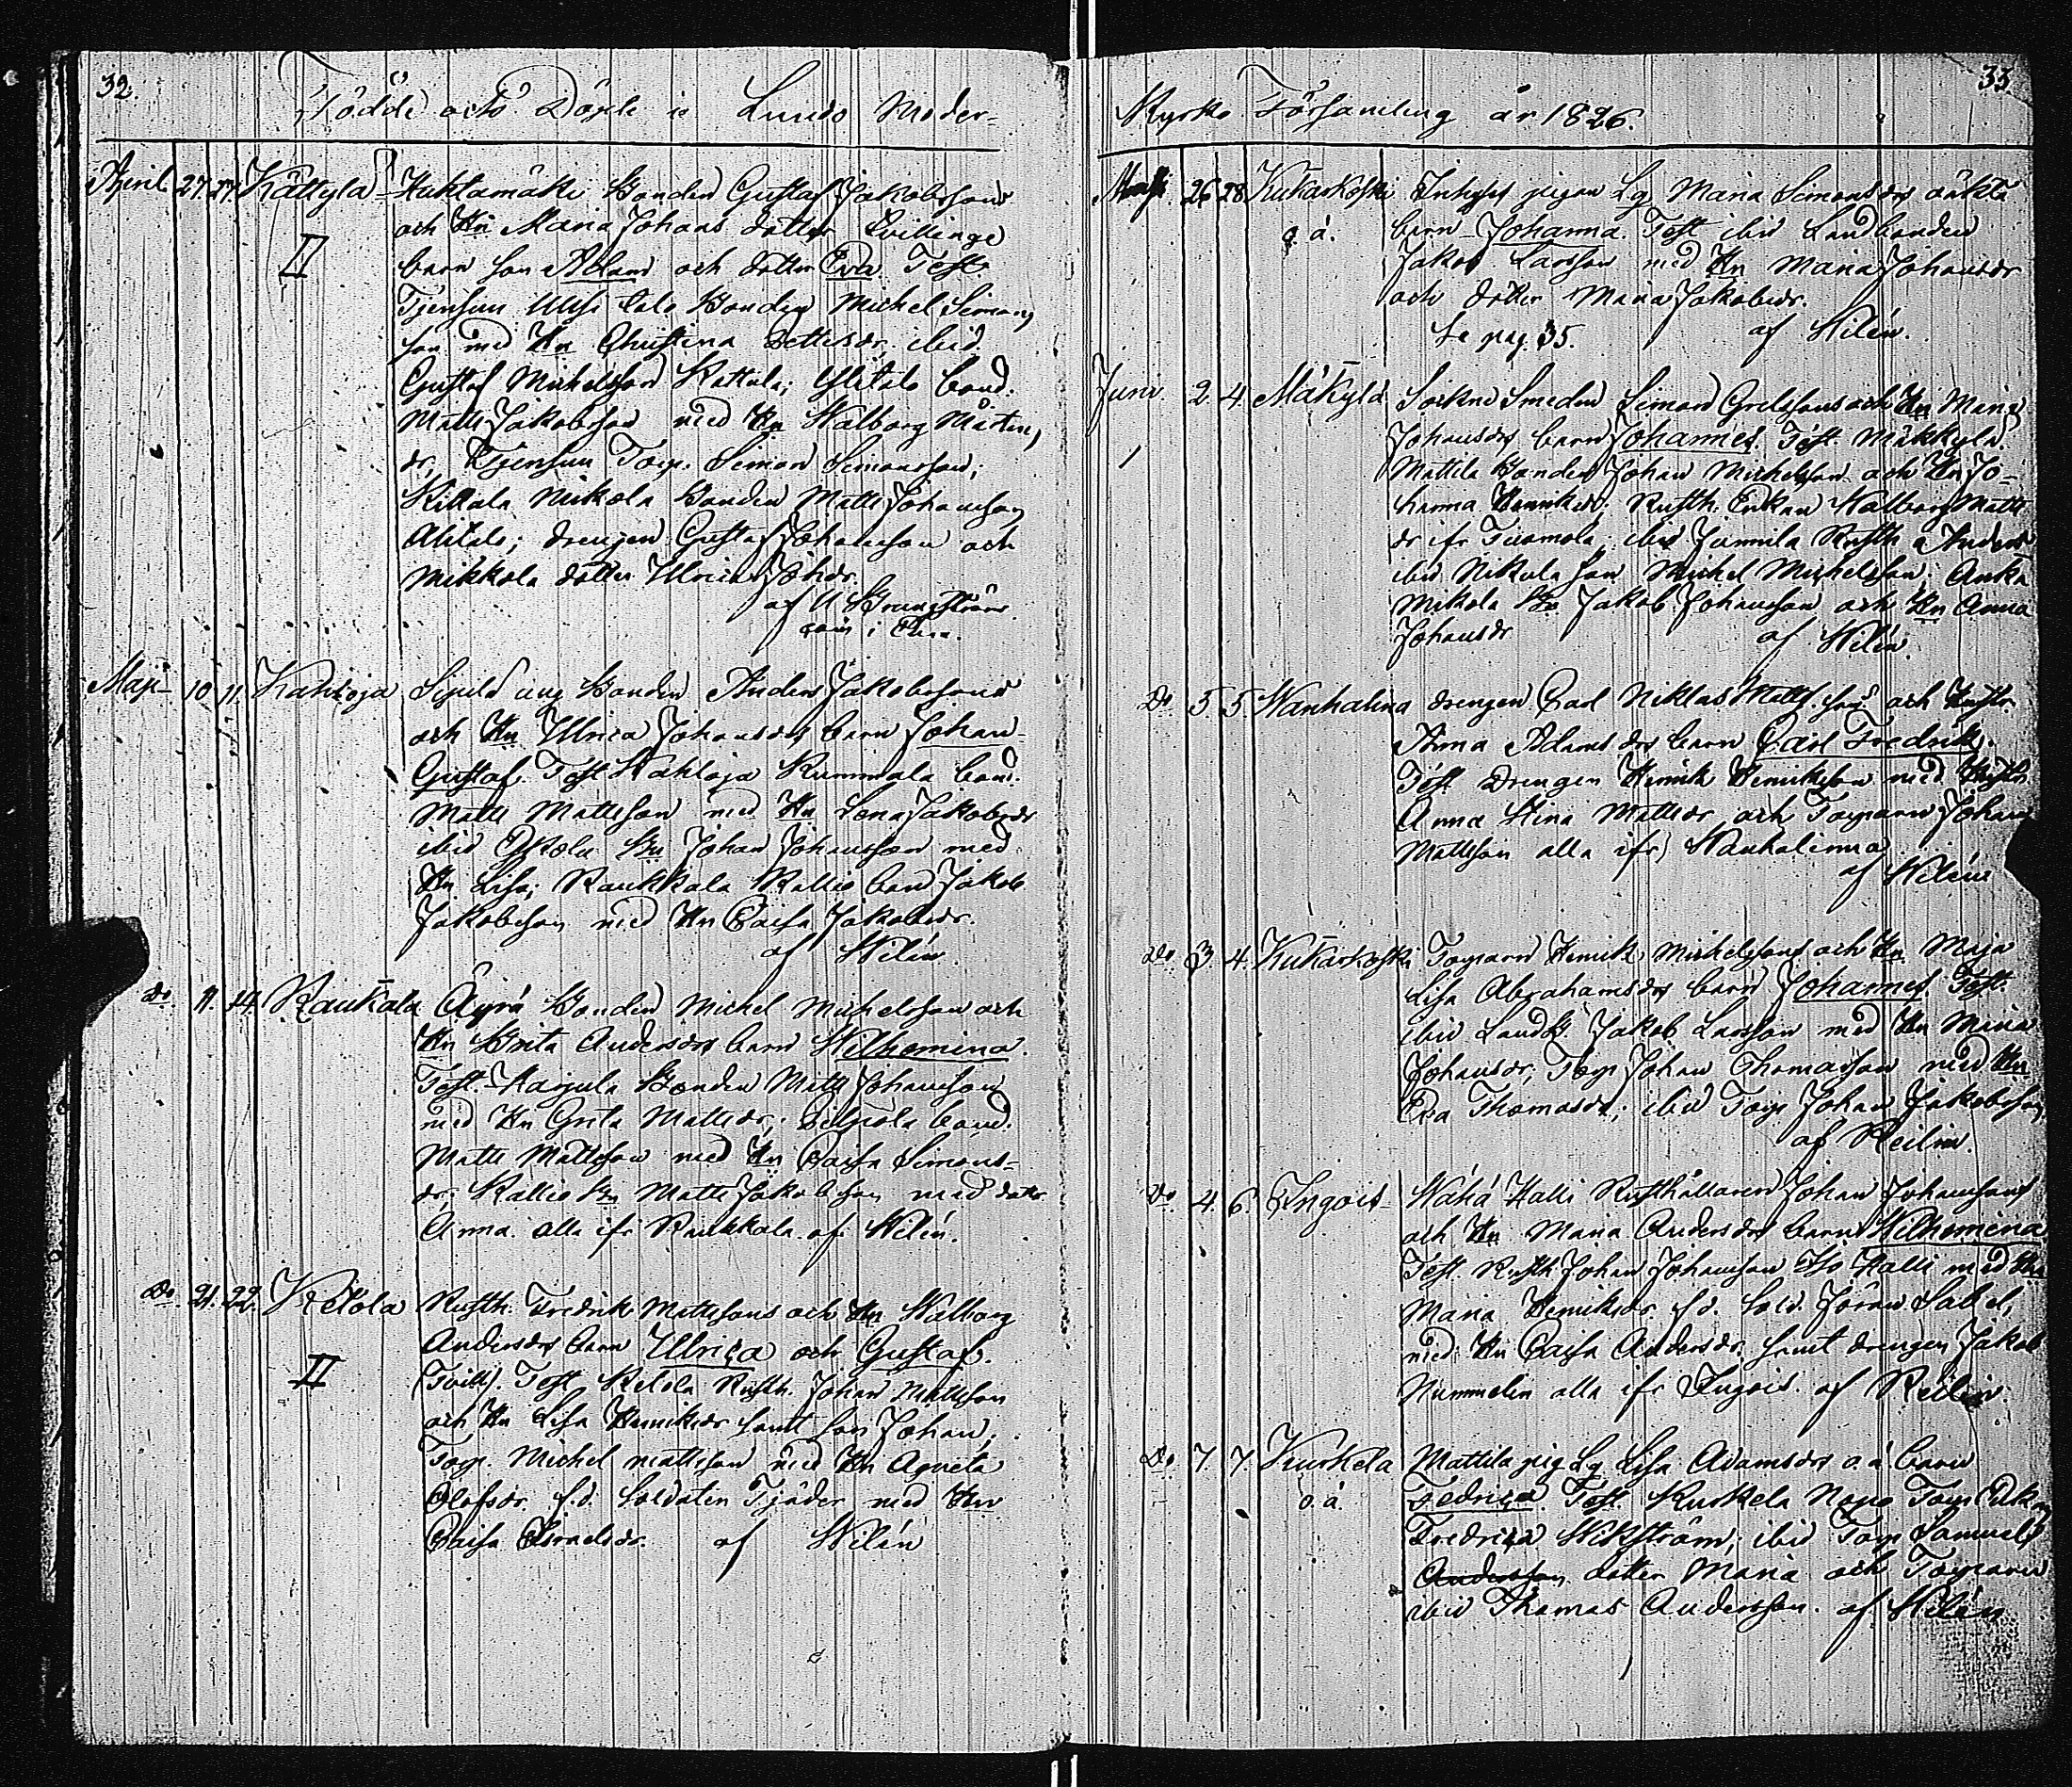 32.
Födde och Döpte i Lundo Moder-
April 27. 27. Kättylä Huktamäki Bonden Gustaf Jakobssons
och Hu Maria Johans dotters Tvillinge
II barn son Adam och dotter Eva. Test
Bonden Michel Simons
son med Hu Christina ibid.
Gustaf Michelsson Kattula; Ylitalo bond.
Matts Jakobsson med Hu Walborg Mårtens
dr; Torp. Simon Simonsson;
Kittala Mikola Bonden Matts Johansson
Alitalo; drengen Gustaf Johansson och
Mikkola dotter Ulrica Johsdr.
af
Maji 10. 11. Kahloja Sipilä ung Bonden Anders Jakobssons
och Hu Ulrica Johansdrs barn Johan
Gustaf. Test Kahloja Rummala bond.
Matts Mattsson med Hu Lena Jakobsdr
ibid Bn Johan Johansson med
Hu Lisa; Raukkala Kallio bond Jakob
Jakobsson med Hu Caisa Jakobsdr.
af Wilén
Do 11. 14. Raukala Äyrä Bonden Michel Michelsson och
Hu Brita Andersdrs barn Wilhemina.
Test. Karjula Bonden Matts Johansson
med Hu Greta Mattsdr; bond.
Matts Mattsson med Hu Caisa Simons-
dr; Kallio Bn Matts Jakobsson med dotter
Anna alla ifr Raukkala af Wilén.
Do 21. 22. Ketola Rusth. Fredrik Mattssons och Hu Walborg
Andersdrs barn Ulrica och Gustaf.
II (Tvill). Test Ketola Rusth. Johan Mattsson
och Hu Lisa Henriksdr samt son Johan;
Torp. Michel Mattsson med Hu Agneta
Olofsdr f.d. Soldaten Tjäder med Hu
Caisa Israelsdr. af Wilén
33
Kyrko Församling år 1826.
Maji. 26 28 Kukarkoski Inhyses pigan Lg Maria Simonsdrs oäkta
o.ä. barn Johanna. Test ibid Landbonden
Jakob Larsson med Hu Maria Johansdr
och dotter Maria Jakobsdr.
Se pag. 35. af Wilén.
Juni. 2. 4. Mäkylä Sockne Smeden Simon Grelssons och Hu Maria
Johansdrs barn Johannes. Test. Mäkkylä
Mattila Bonden Johan Michelsson och Hu Jo-
hanna Henriksdr; Rusth. Enkan Walborg Matts
dr ifr Tuomola; ibid Junnila Rusth a Anders
ibid Nikula son Michel Michelsson; Anka
Mikola Bn Jakob Johansson och Hu Anna
Johansdr af Wilén.
Do. 5. 5. Wanhalina drengen Carl Niklas Matts. sons och Hustr.
Anna Adamsdrs barn Carl Fredrik.
Test drengen Henrik Henriksson med Hustr.
Anna Stina Mattsdr och Torparen Johan
Mattsson alla ifr Wanhalinna
af Wilén
Do 3 4. Kukarkoski Torparen Henrik Michelssons och Hu Maja
Lisa Abrahamsdrs barn Johannes. Test.
ibid Landb. Jakob Larsson med Hu Maria
Johansdr; Torp Johan Thomasson med Hu
Eva Thomasdr; ibid Torp Johan Jakobsson
af Reilin.
Do. 4. 6. Ingois Wähä Halli Rusthållaren Johan Johanssons
och Hu Maria Andersdrs barn Wilhemina.
Test. Rusth Johan Johansson Iso Halli med Hu
Maria Henriksdr f.d. Sold. Jöran Sabel,
med Hu Caisa Andersdr. samt drengen Jakob
Nummelin alla ifr Ingois. af Reilin.
Do 7. 7. Kurkela Mattila pig Lg Lisa Adamsdrs o.ä barn
o.ä. Fedrica. Test. Kurkela Nopo Torp Enk
Fredrica Wikström; ibid Torp Samuels
Andersson dotter Maria och Torparen
ibid Thomas Andersson. af Wilén